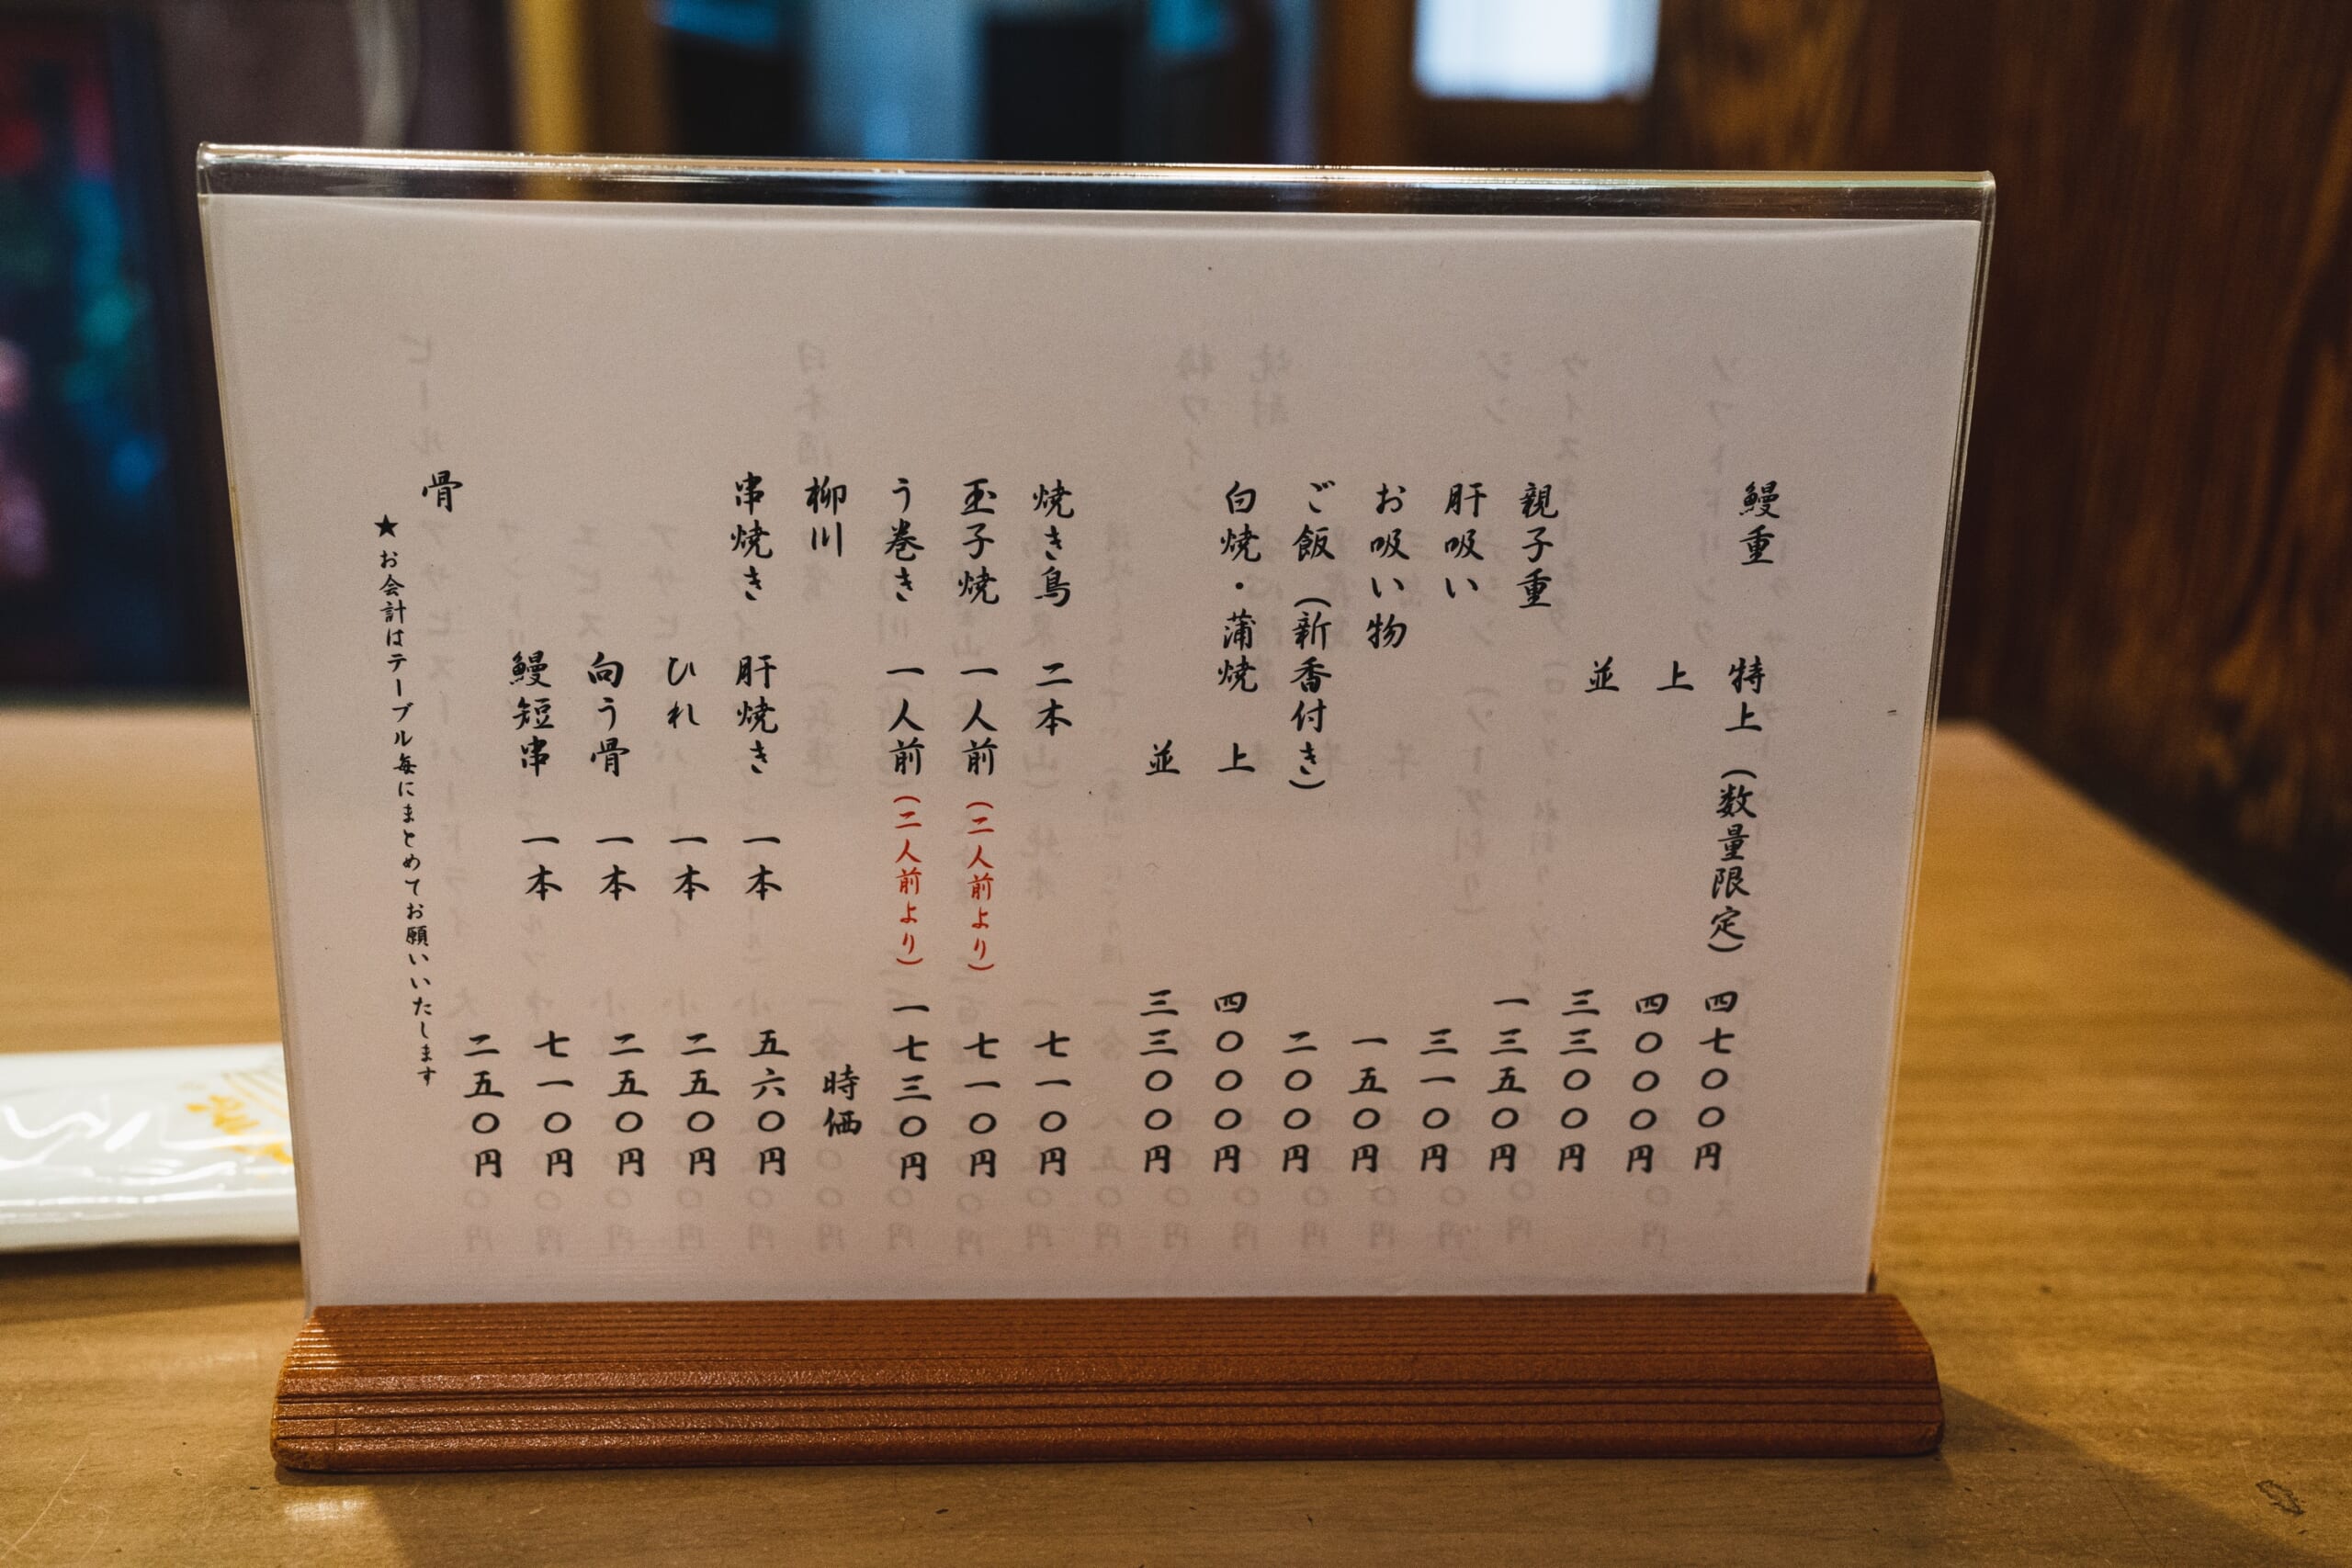 鰻重 特上(数量限定) 四七〇〇円
上 四〇〇〇円
並 三三〇〇円
親子重 一三五〇円
肝吸い 三一〇円
お吸い物 一五〇円
ご飯(新香付き) 二〇〇円
白焼・蒲焼 上 四〇〇〇円
並 三三〇〇円
焼き鳥 二本 七一〇円
玉子焼 一人前(二人前より) 七一〇円
う巻き 一人前(二人前より) 一七三〇円
柳川 時価
串焼き 肝焼き 一本 五六〇円
ひれ 一本 二五〇円
向う骨 一本 二五〇円
鰻短串 一本 七一〇円
骨 二五〇円
★お会計はテーブル毎にまとめてお願いいたします